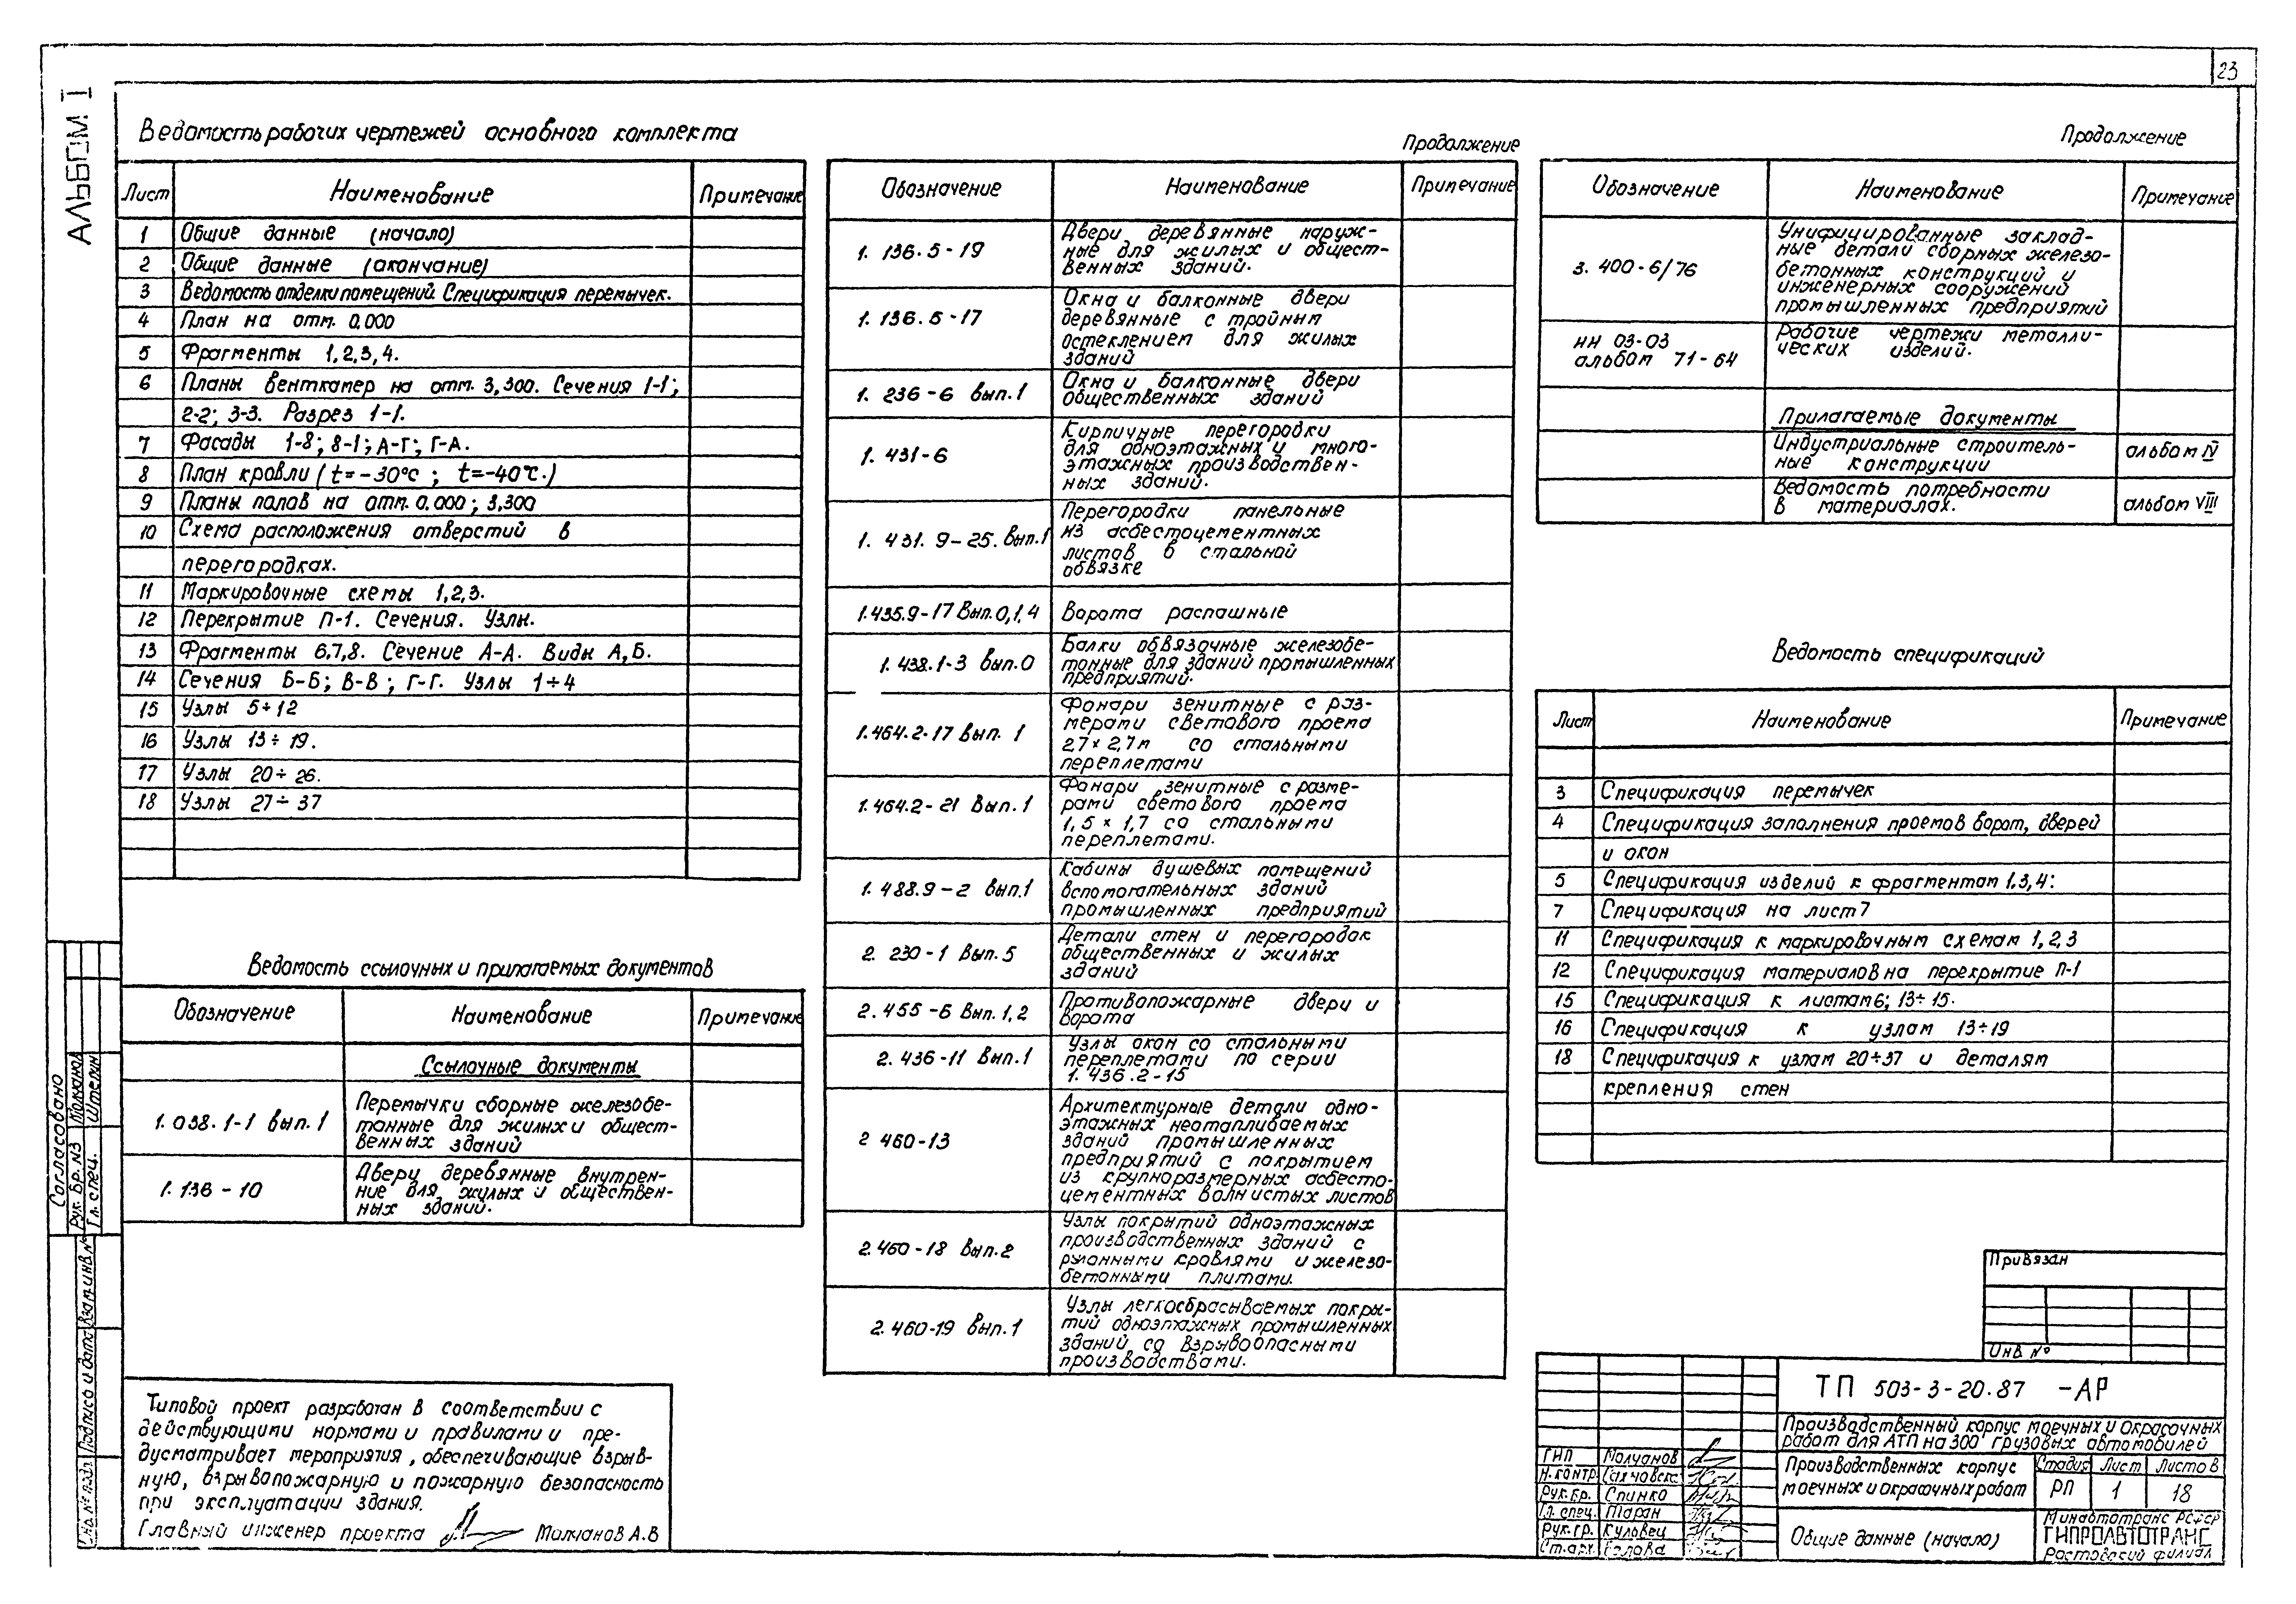 23
АЛЬБОМ I
Ведомость рабочих чертежей основного комплекта
Лист Наименование Примечание
1 Общие данные (начало)
2 Общие данные (окончание)
3 Ведомость отделки помещений. Спецификация перемычек.
4 План на отм. 0,000
5 Фрагменты 1,2,3,4.
6 Планы венткамер на отм. 3,300. Сечения 1-1;
2-2; 3-3. Разрез 1-1.
7 Фасады 1-8; 8-1; А-Г; Г-А.
8 План кровли (t=-30°с ; t=-40°с.)
9 Планы полов на отм. 0,000; 3,300
10 Схема расположения отверстий в
перегородках.
11 Маркировочные схемы 1,2,3.
12 Перекрытие П-1. Сечения. Узлы.
13 Фрагменты 6,7,8. Сечение А-А. Виды А,Б.
14 Сечения Б-Б; В-В; Г-Г. Узлы 1÷4
15 Узлы 5÷12
16 Узлы 13÷19.
17 Узлы 20÷26.
18 Узлы 27÷37
Ведомость ссылочных и прилагаемых документов
Обозначение Наименование Примечание
Ссылочные документы
1.038.1-1 вып.1 Перемычки сборные железобе-
тонные для жилых и общест-
венных зданий
1.136-10 Двери деревянные внутрен-
ние для жилых и обществен-
ных зданий.
Типовой проект разработан в соответствии с
действующими нормами и правилами и пре-
дусматривает мероприятия, обеспечивающие взрыв-
ную, взрывопожарную и пожарную безопасность
при эксплуатации здания.
Главный инженер проекта Молчанов А.В
Продолжение
Обозначение Наименование Примечание
1.136.5-19 Двери деревянные наруж-
ные для жилых и общест-
венных зданий.
1.136.5-17 Окна и балконные двери
деревянные с тройным
остеклением для жилых
зданий
1.236-6 вып.1 Окна и балконные двери
общественных зданий
1.431-6 Кирпичные перегородки
для одноэтажных и много-
этажных производствен-
ных зданий.
1.431.9-25. Вып.1 Перегородки панельные
из асбестоцементных
листов в стальной
обвязке
1.435.9-17 Вып.0,1,4 Ворота распашные
1.438.1-3 вып.0 Балки обвязочные железобе-
тонные для зданий промышленных
предприятий.
1.464.2-17 Вып. 1 Фонари зенитные с раз-
мерами светового проема
2,7×2,7м со стальными
переплетами
1.464.2-21 Вып.1 Фонари зенитные с разме-
рами светового проема
1,5×1,7 со стальными
переплетами.
1.488.9-2 вып.1 Кабины душевых помещений
вспомогательных зданий
промышленных предприятий
2.230-1 Вып.5 Детали стен и перегородок
общественных и жилых
зданий
2.455-6 Вып.1,2 Противопожарные двери и
ворота
2.436-11 Вып.1 Узлы окон со стальными
переплетами по серии
1.436.2-15
2 460-13 Архитектурные детали одно-
этажных неотапливаемых
зданий промышленных
предприятий с покрытием
из крупноразмерных асбесто-
цементных волнистых листов
2.460-18 Вып.2 Узлы покрытий одноэтажных
производственных зданий с
рулонными кровлями и железо-
бетонными плитами.
2.460-19 вып.1 Узлы легкосбрасываемых покры-
тий одноэтажных промышленных
зданий со взрывоопасными
производствами.
Продолжение
Обозначение Наименование Примечание
3.400-6/76 Унифицированные заклад-
ные детали сборных железо-
бетонных конструкций и
инженерных сооружений
промышленных предприятий
ИН 03-03
альбом 71-64 Рабочие чертежи металли-
ческих изделий.
Прилагаемые документы
Индустриальные строитель-
ные конструкции альбом IV
Ведомость потребности
в материалах. альбом VIII
Ведомость спецификаций
Лист Наименование Примечание
3 Спецификация перемычек
4 Спецификация заполнения проемов ворот, дверей
и окон
5 Спецификация изделий к фрагментам 1,3,4:
7 Спецификация на лист 7
11 Спецификация к маркировочным схемам 1,2,3
12 Спецификация материалов на перекрытие П-1
15 Спецификация к листам 6; 13÷15.
16 Спецификация к узлам 13÷19
18 Спецификация к узлам 20÷37 и деталям
крепления стен
Привязан
Инв №
ТП 503-3-20.87 -АР
Производственный корпус моечных и окрасочных
работ для АТП на 300 грузовых автомобилей
Производственных корпус
моечных и окрасочных работ
Стадия Лист Листов
РП 1 18
Общие данные (начало)
Минавтотранс РСФСР
ГИПРОАВТОТРАНС
Ростовский филиал
ГИП Молчанов
Н.контр
Рук.бр. Спинко
Гл. спец. Таран
Рук.гр. Кульвец
Ст.арх.
Согласовано
Рук. бр. №3 Молканов
Гл. спец. Штепин
Взам.инв №
Подпись и дата
Инв.№ подл.